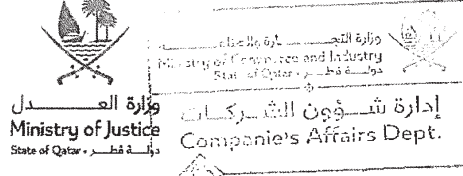 وزارة العــــــدل
Ministry of Justice
State of Qatar • دولــة قطــر
وزارة التجــــــارة والصناعــــــة
Ministry of Commerce and Industry
State of Qatar
دولــة قطــر
إدارة شـــؤون الشـــركـــات
Companie's Affairs Dept.